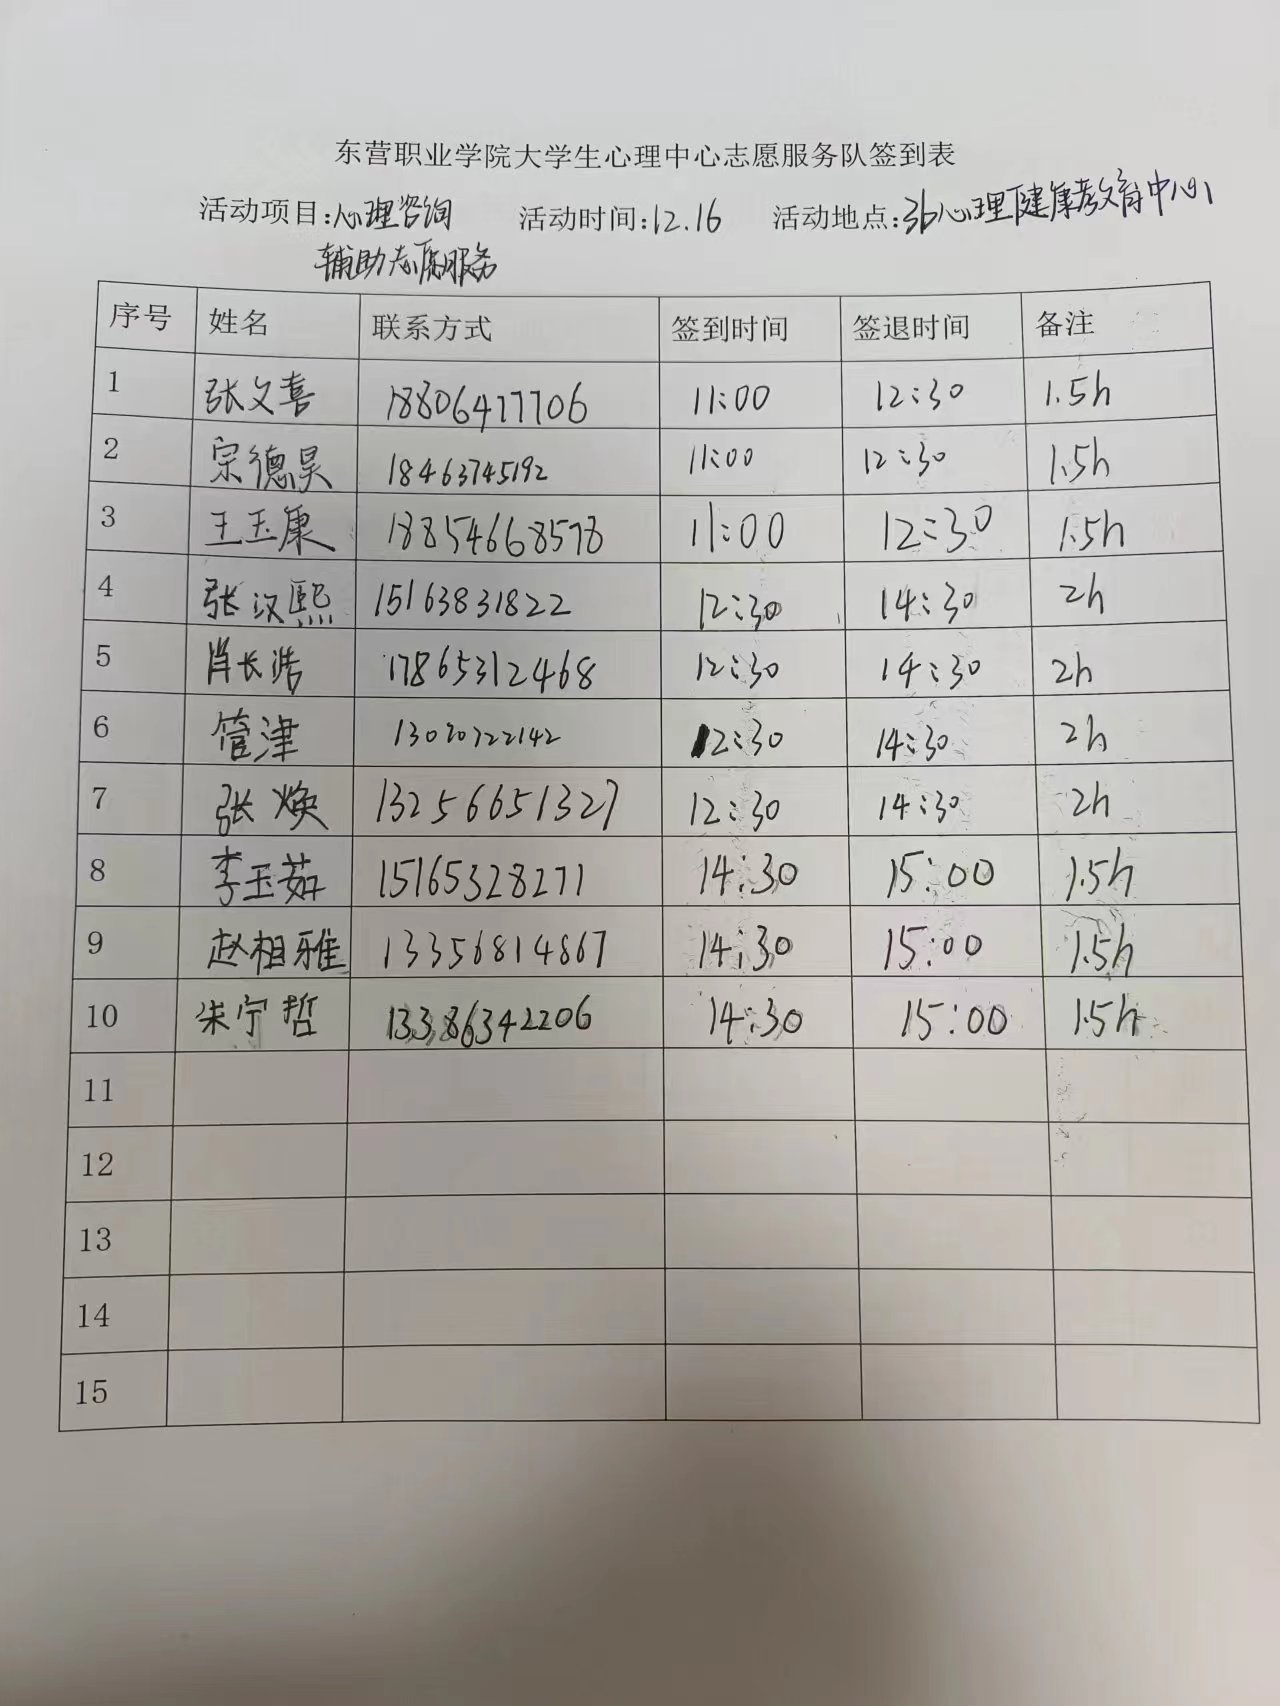 东营职业学院大学生心理中心志愿服务队签到表
活动项目:心理咨询 活动时间:12.16 活动地点:3b心理健康教育中心
辅助志愿服务
序号 姓名 联系方式 签到时间 签退时间 备注
1 张文喜 18806417706 11:00 12:30 1.5h
2 宗德昊 18463745192 11:00 12:30 1.5h
3 王玉康 18854668578 11:00 12:30 1.5h
4 张汉熙 15163831822 12:30 14:30 2h
5 肖长浩 17865312468 12:30 14:30 2h
6 管津 13020722142 12:30 14:30 2h
7 张焕 13256651327 12:30 14:30 2h
8 李玉茹 15165328271 14:30 15:00 1.5h
9 赵相雅 13356814867 14:30 15:00 1.5h
10 朱宁哲 13386342206 14:30 15:00 1.5h
11
12
13
14
15